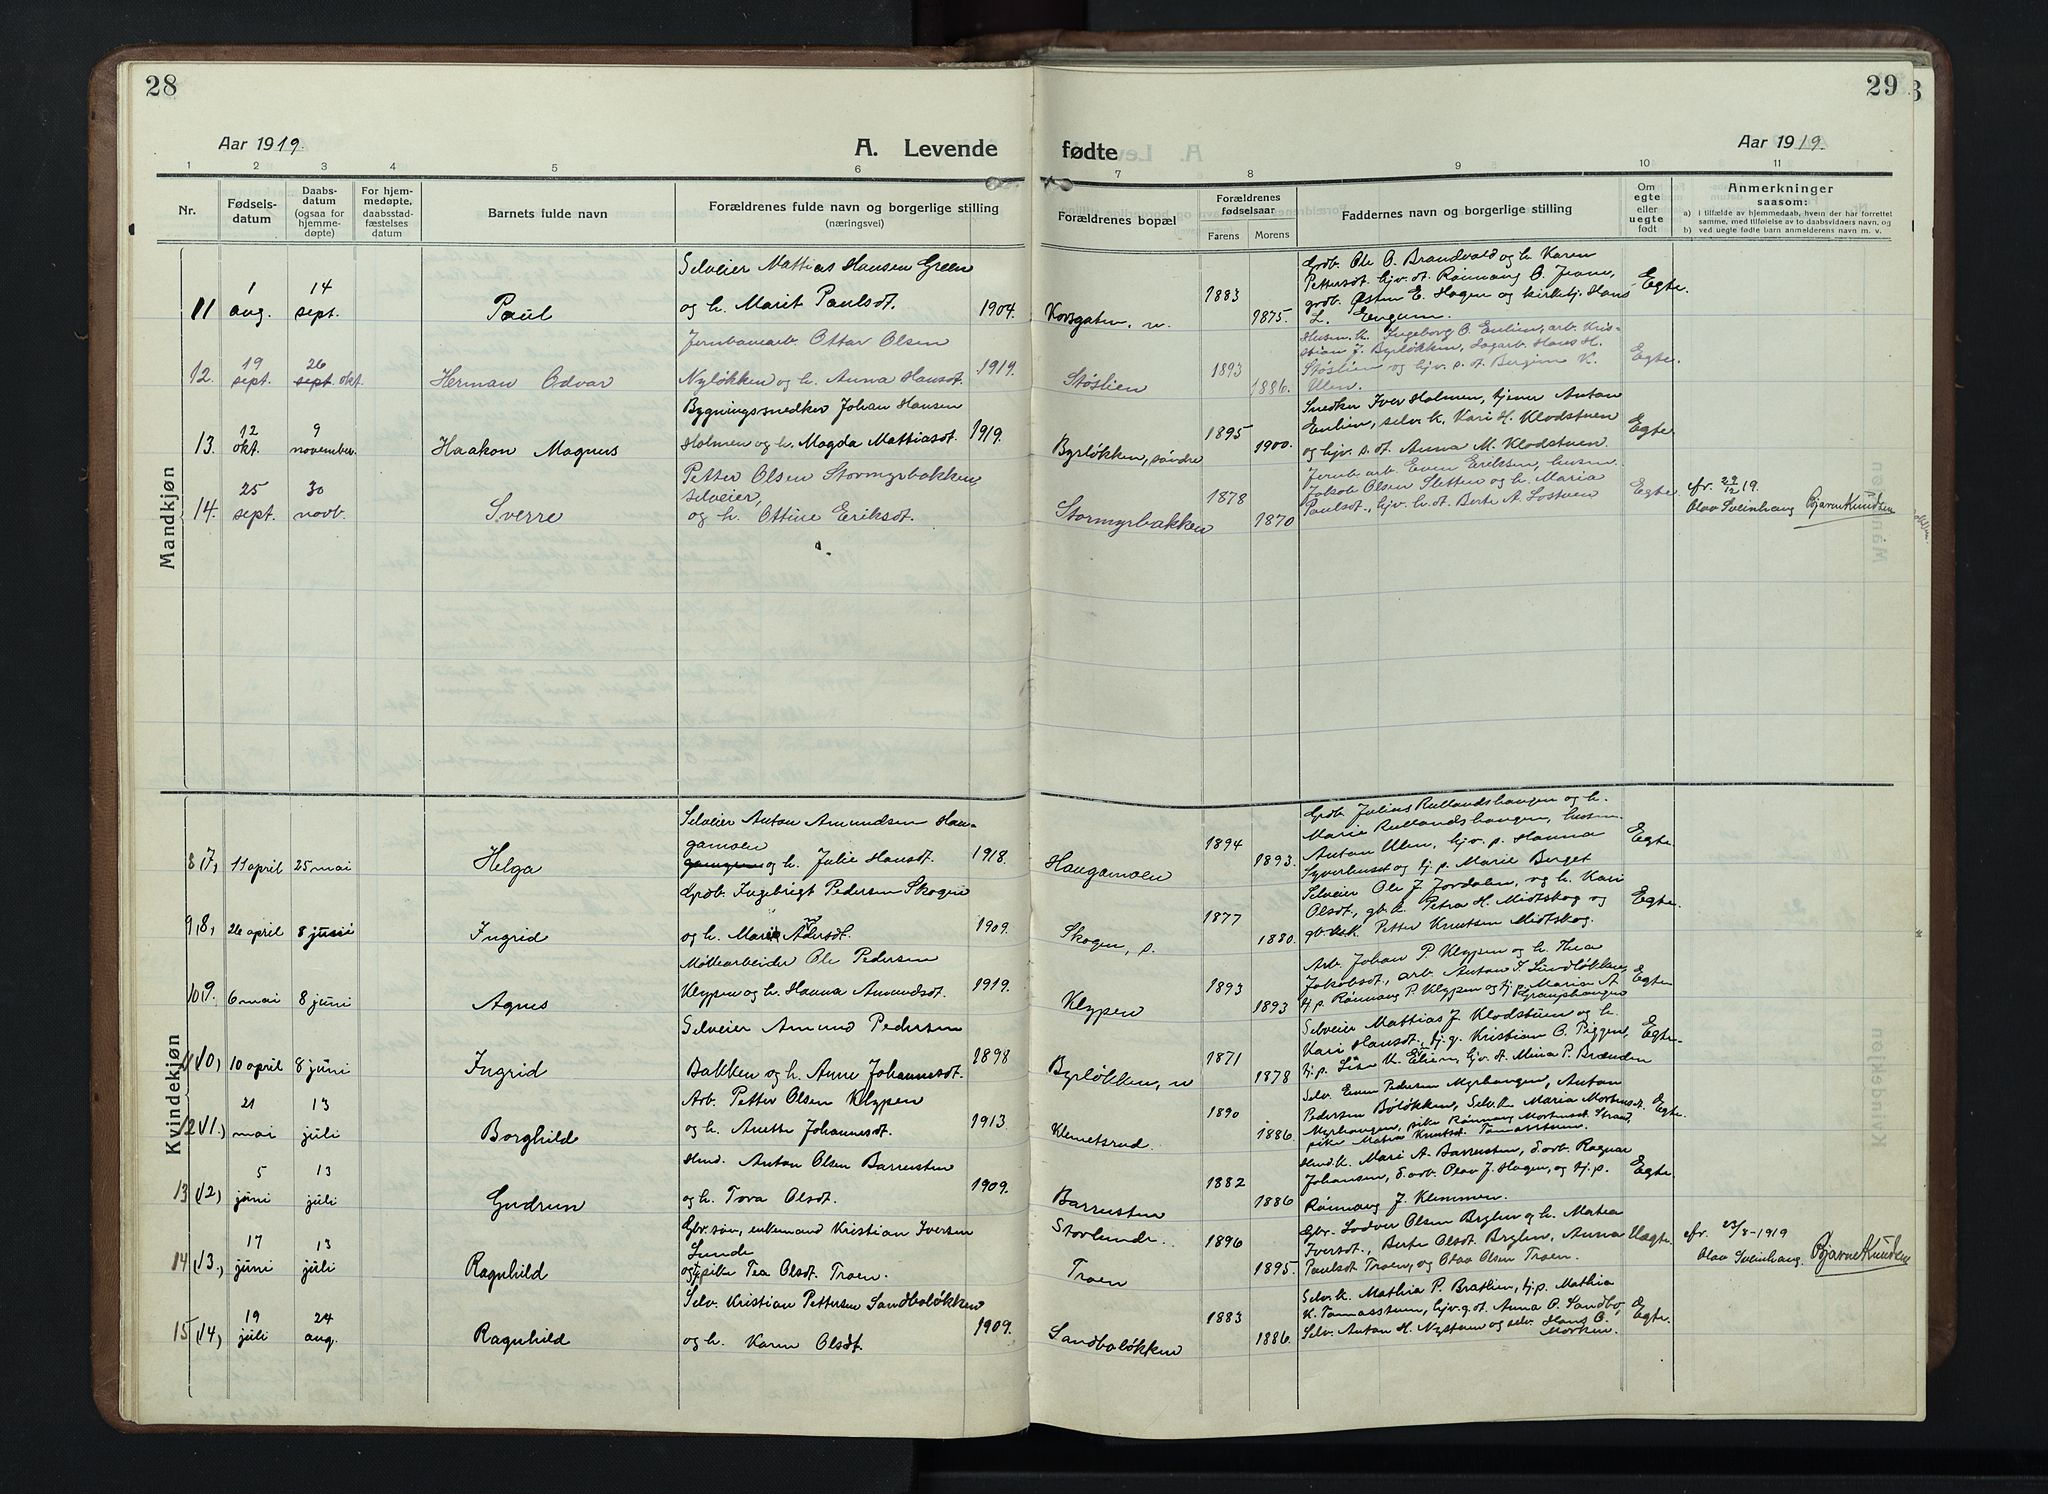 28
29
Aar 1919.
A. Levende
fødte
Aar 1919.
1 2 3 4 5 6
7 8 9 10 11
Nr.
Fødsels-
datum
Daabs-
datum
(ogsaa for
hjemme-
døpte)
For hjem-
medøpte,
daabsstad-
fæstelses
datum
Barnets fulde navn
Forældrenes fulde navn og borgerlige stilling
(næringsvei)
Forældrenes bopæl
Forældrenes
fødselsaar
Farens Morens
Faddernes navn og borgerlige stilling
Om
egte
eller
uegte
født
Anmerkninger
saasom:
a) I tilfælde av hjemmedaab, hvem der har forrettet
samme, med tilføielse av to daabsvidners navn, og
b) ved uegte fødte barn anmelderens navn m. v.
Mandkjøn
11 1 aug. 14 sept. Paul
Selveier Mattias Hansen Green
og h. Marit Paulsdt. 1904.
Korsgaten, n. 1883 1875.
Grdb. Ole O. Brandvold og h. Karen
Pettersdt. hjv. dt. Rønnaug O.
grdb. Østen E. Hagen og kirketj. Hans
L. Engum.
Egte.
12. 19 sept. 26 sept. okt. Herman Odvar
Jernbanearb. Ottar Olsen
Nyløkken og h. Anna Hansdt. 1919.
Støslien 1893 1886.
Husm. k. Ingeborg O. Enlien, arb. Kris-
stian J. Byrløkken, Sagarb. Hans H.
Støslien og hjv. p. dt. Bergine K.
Ulen.
Egte.
13. 12 okt. 9 november. Haakon Magnus
Bygningssnedker Johan Hansen
Holmen og h. Magda Mattiasdt. 1919.
Byrløkken, søndre 1895 1900.
Snedker Iver Holmen, tjener Anton
Enlien, selv. k. Kari H. Klodstuen
og hjv. s. dt. Anna M. Klodstuen.
Egte.
14. 25 sept. 30 novb. Sverre
Petter Olsen Stormyrbakken,
selveier,
og h. Ottine Eriksdt.
Stormyrbakken 1878 1870
Jernb. arb. Even Eriksen, husm.
Jakob Olsen Sletten og h. Maria
Paulsdt., hjv. h. dt. Berte A. Sostuen
Egte.
cfr. 29/12 19.
Olav Sveinhaug Bjarne Knudsen
Kvindekjøn
8 (7) 11 april 25 mai Helga
Selveier Anton Amundsen Hau-
gamoen
og h. Julie Hansdt. 1918.
Haugamoen 1894 1893.
Grdb. Julius Rullandshaugen og h.
Marie Rullandshaugen, husm.
Anton Ulen, hjv. p. Hanna
Syverhuset og tj. p. Marie Berget
Egte.
9 (8) 26 april 8 juni Ingrid
Grdb. Ingebrigt Pedersen Skogen
og h. Mari Adersdt. 1909.
Skogen, s. 1877 1880.
Selveier Ole J. Jordalen, og h. Kari
Olsdt., gb. k. Petra H. Midtskog og
gb. Petter Knutsen Midtskog.
Egte.
10 9. 6 mai 8 juni Agnes
Møllearbeider Ole Pedersen
Klypen og h. Hanna Amundsdt. 1919.
Klypen 1893 1893
Arb. Johan P. Klypen og h. Thea
Jakobsdt, arb. Anton J. Lindløkken,
tj. p. Rønnaug P. Klypen og tj. Maria A.
Egte
11 (10) 10 april 8 juni Ingrid
Selveier Amund Pedersen
Bakken og h. Anne Johannesdt. 1898
Byrløkken, n 1871 1878
Selveier Mattias J. Klodstuen og h.
Kari Hansdt., tj. g. Kristian O. Piggen,
tj. p. Lisa K. Elien, hjv. dt. Mina P. Brænden
Egte.
12 (11.) 21 mai 13 juli Borghild
Arb. Petter Olsen Klypen
og h. Anette Johannesdt. 1913.
Klemetsrud. 1890 1886.
Selv. Even Pedersen Myrhaugen, Anton
Pedersen Bøløkken, Selv. k. Maria Mortensdt.
Myrhaugen, pike Rønnaug Mortensdt. Strand,
pike Matea Knutsdt. Tomasstuen.
Egte.
13 (12) 5 juni 13 juli Gudrun
Husd. Anton Olsen Barrusten
og h. Tora Olsdt. 1909.
Barrusten 1882 1886
Husd. k. Mari A. Barrusten, S. arb. Ragnar
Johansen, S. arb. Olav J. Hagen, og tj. p.
Rønnaug J. Klemmen.
Egte.
14 (13.) 17 juni 13 juli Ragnhild
Gbr. søn, enkemand Kristian Iversen
Lunde
og pike Tea Olsdt. Troen.
Storlunde.
Troen 1896 1895.
Gbr. Lodver Olsen Brylen og h. Matea
Iversdt., Berte Olsdt. Brylen, Anna
Paulsdt Troen, og Olaa Olsen Troen.
Uegte.
cfr. 23/8-1919
Olav Sveinhaug. Bjarne Knudsen
15 (14) 19 juli 24 aug. Ragnhild
Selv. Kristian Pettersen Sandboløkken
og h. Karen Olsdt. 1909.
Sandboløkken 1883 1886.
Selv. k. Mathia P. Bratlien, tj. p. Mathia
K. Tomasstuen, hjv. g. dt. Anna O. Sandbo,
Selv. Anton H. Nystuen og selv. Hans O.
Morken.
Egte.